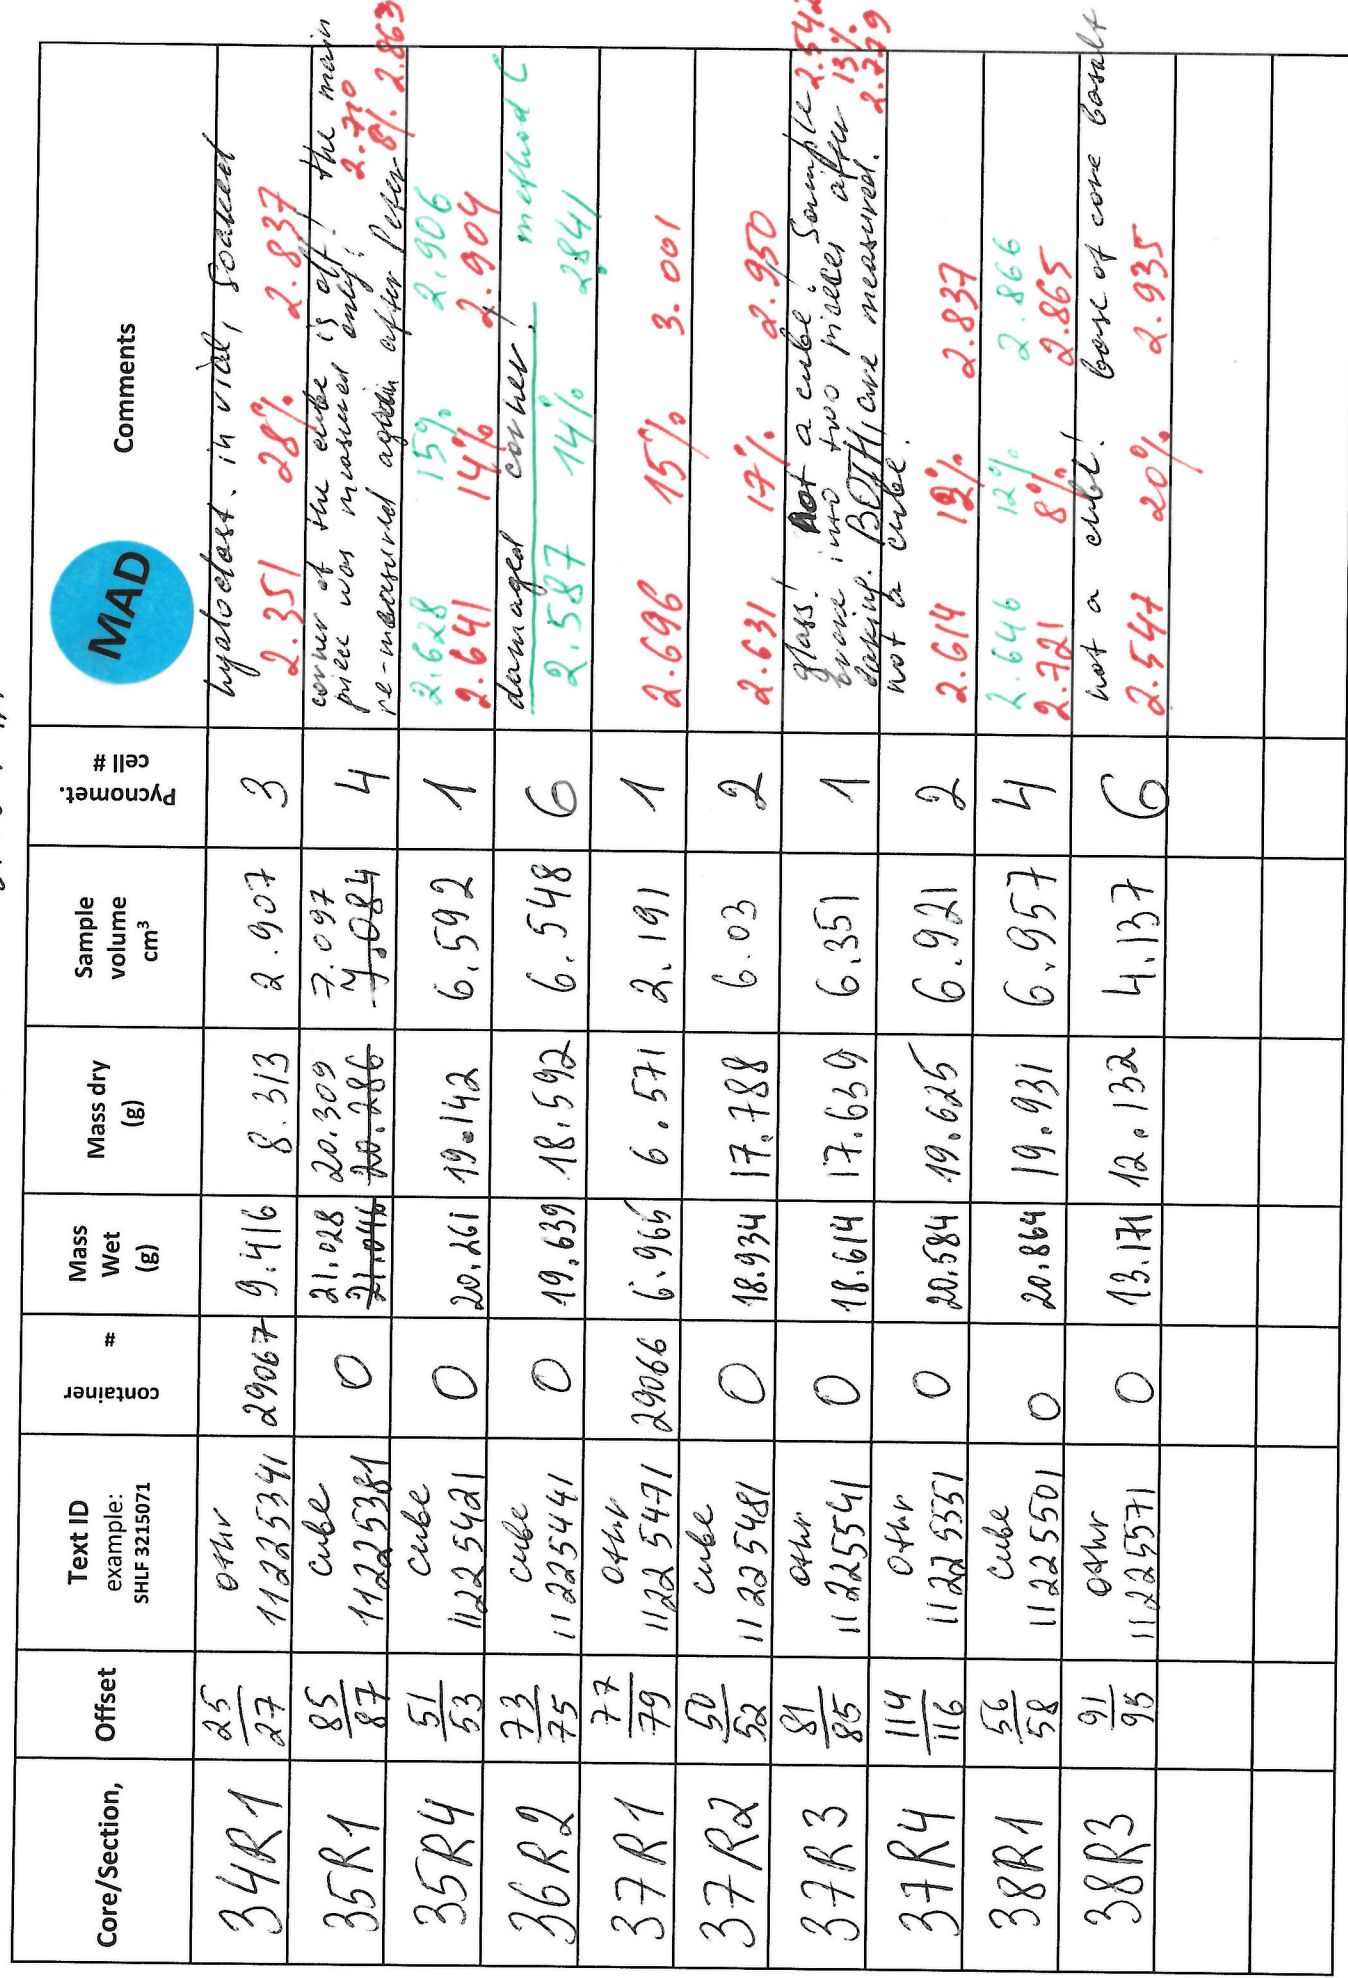 Core/Section, Offset Text ID example: SHLF 3215071 container # Mass Wet (g) Mass dry (g) Sample volume cm³ Pycnomet. cell # MAD Comments
34R1 25/27 othr 11225341 29067 9.416 8.313 2.907 3 hyaloclast. in vial, soaked
2.351 28% 2.837
35R1 85/87 cube 11225381 0 21.028 20.309 7.097 4 corner of the cube is off! the main
21.046 20.286 7.084 piece was measured only! 2.710
re-measured again after Peter 8% 2.863
35R4 51/53 cube 11225421 0 20.261 19.142 6.592 1 2.628 15% 2.906
2.641 14% 2.904
36R2 73/75 cube 11225441 0 19.639 18.592 6.548 6 damaged corner! method C
2.587 14% 2.841
37R1 77/79 othr 11225471 29066 6.965 6.571 2.191 1 2.696 15% 3.001
37R2 50/52 cube 11225481 0 18.934 17.788 6.03 2 2.631 17% 2.950
37R3 81/85 othr 11225541 0 18.614 17.659 6.351 1 glass! Not a cube! Sample 2.542
broke into two pieces after 13%
baking. BOTH are measured. 2.779
37R4 114/116 othr 11225551 0 20.584 19.625 6.921 2 not a cube.
2.614 12% 2.837
38R1 56/58 cube 11225501 0 20.864 19.931 6.957 4 2.646 12% 2.866
2.721 8% 2.865
38R3 91/95 othr 11225571 0 13.171 12.132 4.137 6 not a cube! base of core basalt
2.547 20% 2.935